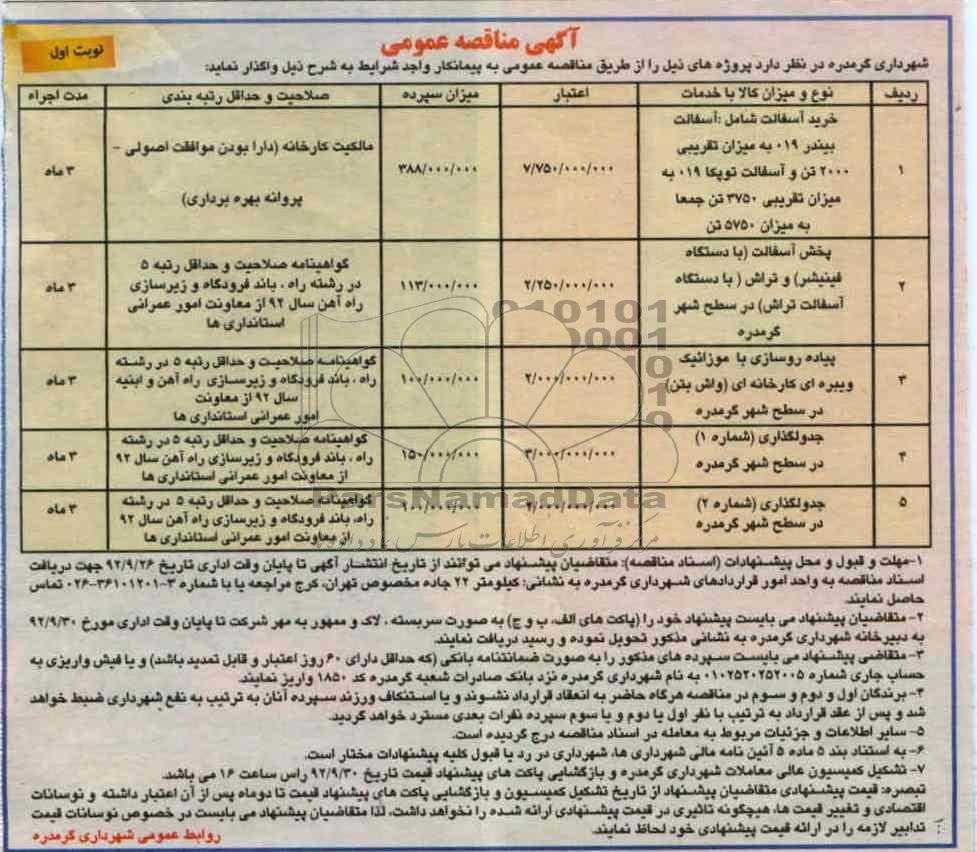 آگهی مناقصه عمومی
نوبت اول
شهرداری گرمدره در نظر دارد پروژه های ذیل را از طریق مناقصه عمومی به پیمانکار واجد شرایط به شرح ذیل واگذار نماید:
ردیف	نوع و میزان کالا یا خدمات	اعتبار	میزان سپرده	صلاحیت و حداقل رتبه بندی	مدت اجراء
خرید آسفالت شامل :آسفالت
بیندر ۰۱۹ به میزان تقریبی
۲۰۰۰ تن و آسفالت توپکا ۰۱۹ به
میزان تقریبی ۳۷۵۰ تن جمعا
به میزان ۵۷۵۰ تن
۱	۷/۷۵۰/۰۰۰/۰۰۰	۳۸۸/۰۰۰/۰۰۰
مالکیت کارخانه (دارا بودن موافقت اصولی -
پروانه بهره برداری)
۳ ماه
پخش آسفالت (با دستگاه
فینیشر) و تراش ( با دستگاه
آسفالت تراش) در سطح شهر
گرمدره
۲	۲/۲۵۰/۰۰۰/۰۰۰	۱۱۳/۰۰۰/۰۰۰
گواهینامه صلاحیت و حداقل رتبه ۵
در رشته راه ، باند فرودگاه و زیرسازی
راه آهن سال ۹۲ از معاونت امور عمرانی
استانداری ها
۳ ماه
پیاده روسازی با موزائیک
ویبره ای کارخانه ای (واش بتن)
در سطح شهر گرمدره
۳	۲/۰۰۰/۰۰۰/۰۰۰	۱۰۰/۰۰۰/۰۰۰
گواهینامه صلاحیت و حداقل رتبه ۵ در رشته
راه ، باند فرودگاه و زیرسازی راه آهن و ابنیه
سال ۹۲ از معاونت
امور عمرانی استانداری ها
۳ ماه
جدولگذاری (شماره ۱)
در سطح شهر گرمدره
۴	۳/۰۰۰/۰۰۰/۰۰۰	۱۵۰/۰۰۰/۰۰۰
گواهینامه صلاحیت و حداقل رتبه ۵ در رشته
راه ، باند فرودگاه و زیرسازی راه آهن سال ۹۲
از معاونت امور عمرانی استانداری ها
۳ ماه
جدولگذاری (شماره ۲)
در سطح شهر گرمدره
۵
گواهینامه صلاحیت و حداقل رتبه ۵ در رشته
راه، باند فرودگاه و زیرسازی راه آهن سال ۹۲
از معاونت امور عمرانی استانداری ها
۳ ماه
ParsNamadData
۱-مهلت و قبول و محل پیشنهادات (اسناد مناقصه): متقاضیان پیشنهاد می توانند از تاریخ انتشار آگهی تا پایان وقت اداری تاریخ ۹۲/۹/۲۶ جهت دریافت
اسناد مناقصه به واحد امور قراردادهای شهرداری گرمدره به نشانی: کیلومتر ۲۲ جاده مخصوص تهران، کرج مراجعه یا با شماره ۳-۳۶۱۰۱۲۰۱-۰۲۶ تماس
حاصل نمایند.
۲- متقاضیان پیشنهاد می بایست پیشنهاد خود را (پاکت های الف، ب و ج) به صورت سربسته ، لاک و ممهور به مهر شرکت تا پایان وقت اداری مورخ ۹۲/۹/۳۰
به دبیرخانه شهرداری گرمدره به نشانی مذکور تحویل نموده و رسید دریافت نمایند.
۳- متقاضی پیشنهاد می بایست سپرده های مذکور را به صورت ضمانتنامه بانکی (که حداقل دارای ۶۰ روز اعتبار و قابل تمدید باشد) و یا فیش واریزی به
حساب جاری شماره ۰۱۰۲۵۲۰۲۵۲۰۰۵ به نام شهرداری گرمدره نزد بانک صادرات شعبه گرمدره کد ۱۸۵۰ واریز نمایند.
۴- برندگان اول و دوم و سوم در مناقصه هرگاه حاضر به انعقاد قرارداد نشوند و یا استنکاف ورزند سپرده آنان به ترتیب به نفع شهرداری ضبط خواهد
شد و پس از عقد قرارداد به ترتیب با نفر اول یا دوم و یا سوم سپرده نفرات بعدی مسترد خواهد گردید.
۵- سایر اطلاعات و جزئیات مربوط به معامله در اسناد مناقصه درج گردیده است.
۶- به استناد بند ۵ ماده ۵ آئین نامه مالی شهرداری ها، شهرداری در رد یا قبول کلیه پیشنهادات مختار است.
۷- تشکیل کمیسیون عالی معاملات شهرداری گرمدره و بازگشایی پاکت های پیشنهاد قیمت تاریخ ۹۲/۹/۳۰ راس ساعت ۱۶ می باشد.
تبصره: قیمت پیشنهادی متقاضیان پیشنهاد از تاریخ تشکیل کمیسیون و بازگشایی پاکت های پیشنهاد قیمت تا دوماه پس از آن اعتبار داشته و نوسانات
اقتصادی و تغییر قیمت ها، هیچگونه تاثیری در قیمت پیشنهادی ارائه شده را نخواهد داشت، لذا متقاضیان پیشنهاد می بایست در خصوص نوسانات قیمت
تدابیر لازمه را در ارائه قیمت پیشنهادی خود لحاظ نمایند.
روابط عمومی شهرداری گرمدره